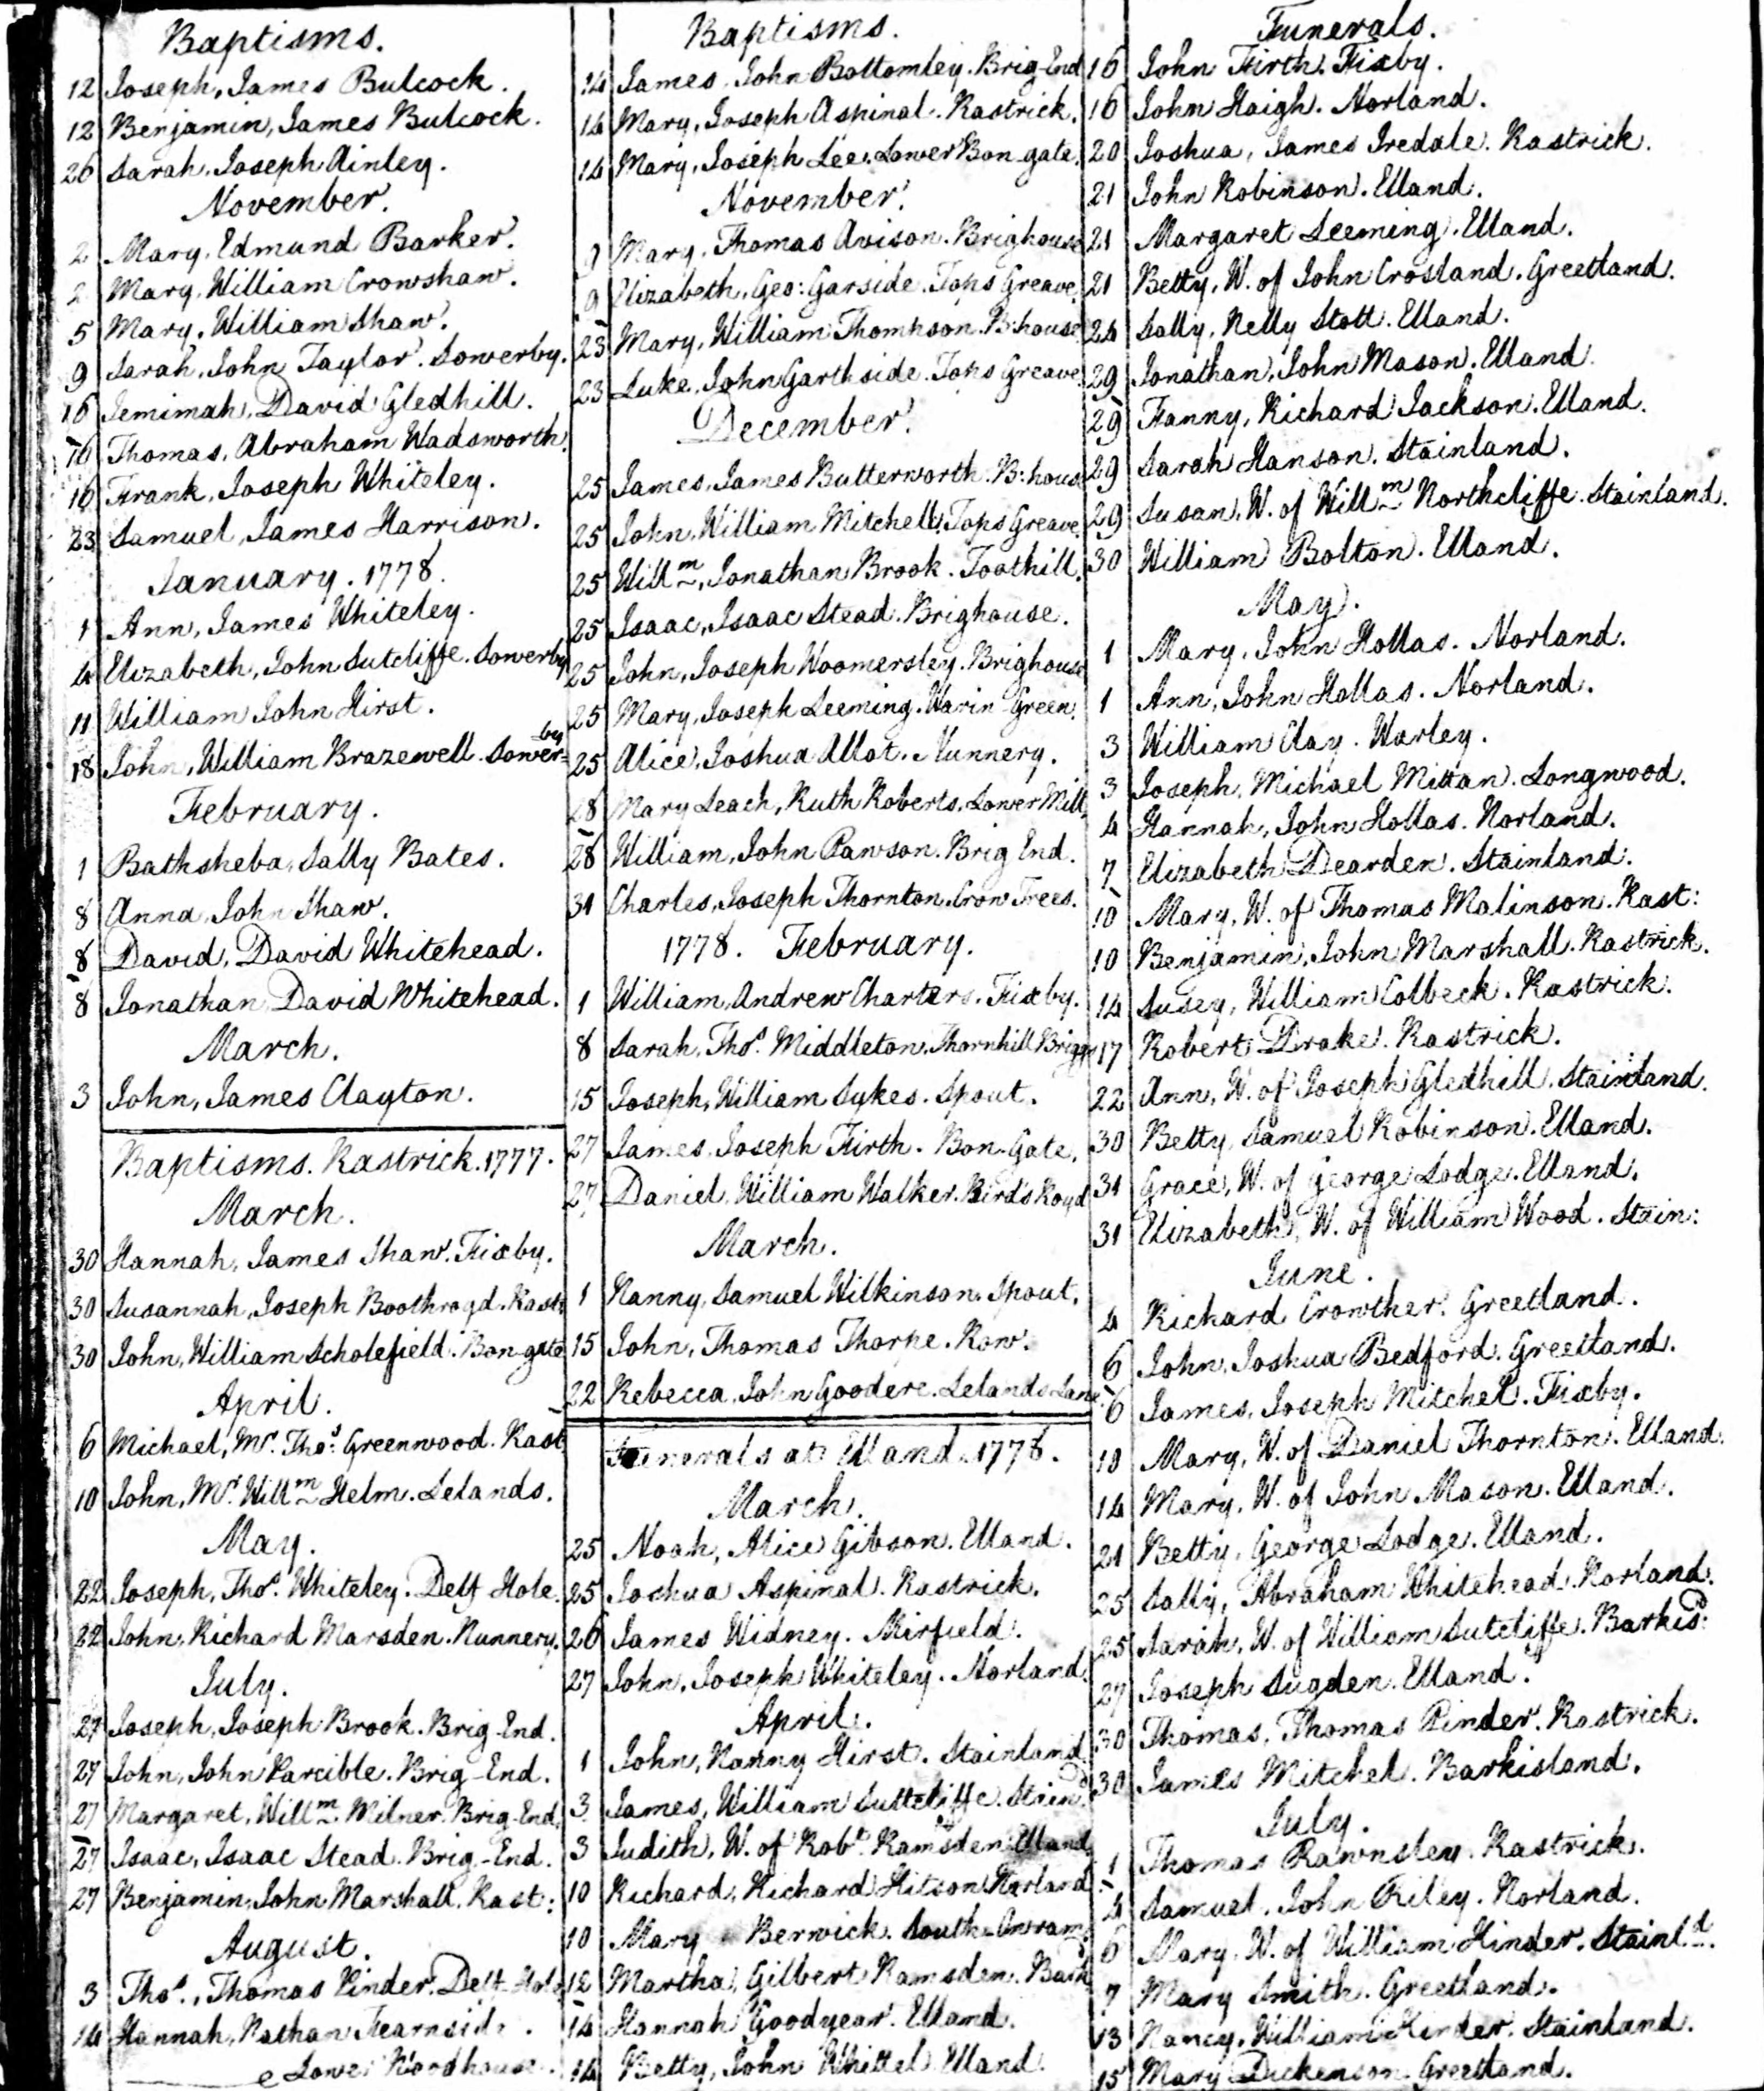 Baptisms.
12 Joseph, James Bulcock.
12 Benjamin, James Bulcock.
26 Sarah, Joseph Ainley.
November.
2 Mary, Edmund Barker.
2 Mary, William Crowshaw.
5 Mary, William Shaw.
9 Sarah, John Taylor. Sowerby.
16 Jemimah, David Gledhill.
16 Thomas, Abraham Wadsworth.
16 Frank, Joseph Whiteley.
23 Samuel, James Harrison.
January. 1778.
1 Ann, James Whiteley.
4 Elizabeth, John Sutcliffe. Sowerby
11 William John Hirst.
18 John, William Brazewell. Sower=by
February.
1 Bathsheba, Sally Bates.
8 Anna, John Shaw.
8 David, David Whitehead.
8 Jonathan David Whitehead.
March.
3 John, James Clayton.
Baptisms. Rastrick. 1777.
March.
30 Hannah, James Shaw. Fixby.
30 Susannah, Joseph Boothroyd. Rast:
30 John, William Scholefield. Bon-gate
April.
6 Michael, Mr. Thos. Greenwood. Rast
10 John, Mr. Willm Helm. Lelands.
May.
22 Joseph, Thos. Whiteley. Delf Hole.
22 John, Richard Marsden. Nunnery.
July.
27 Joseph, Joseph Brook. Brig-End.
27 John, John Parcible. Brig-End.
27 Margaret, Willm Milner. Brig-End.
27 Isaac, Isaac Stead. Brig-End.
27 Benjamin, John Marshall. Rast:
August.
3 Thos., Thomas Pinder. Delf-Hole
14 Hannah, Nathan Fearnside.
Lower Woodhouse.
Baptisms.
14 James, John Bottomley. Brig-End
14 Mary, Joseph Aspinal. Rastrick.
14 Mary, Joseph Lee. Lower Bon-gate.
November.
9 Mary, Thomas Avison. Brighouse
9 Elizabeth, Geo: Garside. Tops Greave.
23 Mary, William Thompson. B:house
23 Luke, John Garthside. Tops Greave.
December.
25 James, James Butterworth. B:house
25 John, William Mitchell. Tops Greave.
25 Willm, Jonathan Brook. Toothill.
25 Isaac, Isaac Stead. Brighouse.
25 John, Joseph Woomersley. Brighouse
25 Mary, Joseph Leeming. Warin Green.
25 Alice, Joshua Allot. Nunnery.
28 Mary Leach, Ruth Roberts. Lower Mill.
28 William, John Pawson. Brig End.
31 Charles, Joseph Thornton. Crow Trees.
1778. February.
1 William, Andrew Charters. Fixby.
8 Sarah, Thos. Middleton. Thornhill Brigg
15 Joseph, William Sykes. Spout.
27 James, Joseph Firth. Bon-Gate.
27 Daniel, William Walker. Birds Royd
March.
1 Nanny, Samuel Wilkinson. Spout.
15 John, Thomas Thorpe. Row.
22 Rebecca, John Goodere. Lelands Lane
Funerals at Elland. 1778.
March.
25 Noah, Alice Gibson. Elland.
25 Joshua Aspinal. Rastrick.
26 James Widney. Mirfield.
27 John, Joseph Whiteley. Norland.
April.
1 John, Nanny Hirst. Stainland
3 James, William Suttcliffe. Stain
3 Judith, W. of Robt. Ramsden. Elland
10 Richard, Richard Hitson. Norland
10 Mary Berwick. South-Owram
12 Martha, Gilbert Ramsden. Bark
14 Hannah Goodyear. Elland.
14 Betty, John Whittel. Elland.
Funerals.
16 John Firth. Fixby.
16 John Haigh. Norland.
20 Joshua, James Iredale. Rastrick.
21 John Robinson. Elland.
21 Margaret Leeming. Elland.
21 Betty, W. of John Crosland. Greetland.
24 Sally, Nelly Stott. Elland.
29 Jonathan, John Mason. Elland
29 Fanny, Richard Jackson. Elland.
29 Sarah Hanson. Stainland.
29 Susan, W. of Willm Northcliffe. Stainland.
30 William Bolton. Elland.
May.
1 Mary, John Hollas. Norland.
1 Ann, John Hollas. Norland.
3 William Clay. Warley.
3 Joseph, Michael Mittan. Longwood.
4 Hannah, John Hollas. Norland.
7 Elizabeth Dearden. Stainland.
10 Mary, W. of Thomas Malinson. Rast:
10 Benjamin, John Marshall. Rastrick.
14 Susey, William Colbeck. Rastrick.
17 Robert Drake. Rastrick.
22 Ann, W. of Joseph Gledhill. Stainland.
30 Betty, Samuel Robinson. Elland.
31 Grace, W. of George Lodge. Elland.
31 Elizabeth, W. of William Wood. Stain:
June.
4 Richard Crowther. Greetland.
6 John, Joshua Bedford. Greetland.
6 James, Joseph Mitchel. Fixby.
10 Mary, W. of Daniel Thornton. Elland.
14 Mary, W. of John Mason. Elland.
21 Betty, George Lodge. Elland.
25 Sally, Abraham Whitehead. Norland.
25 Sarah, W. of William Sutcliffe. Barkisd:
27 Joseph Sugden. Elland.
30 Thomas, Thomas Pinder. Rastrick.
30 James Mitchel. Barkisland.
July.
1 Thomas Rawnsley. Rastrick.
4 Samuel, John Riley. Norland.
6 Mary, W. of William Hinder. Stainld.
7 Mary Smith. Greetland.
13 Nancy, William Hinder. Stainland.
15 Mary Dickenson. Greetland.